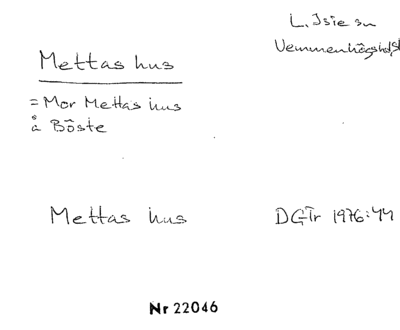 L. Isie sn
Vemmenhögs hd, sk
Mettas hus
= Mor Mettas hus
å Böste
Mettas hus
DGTr 1976:44
Nr 22046